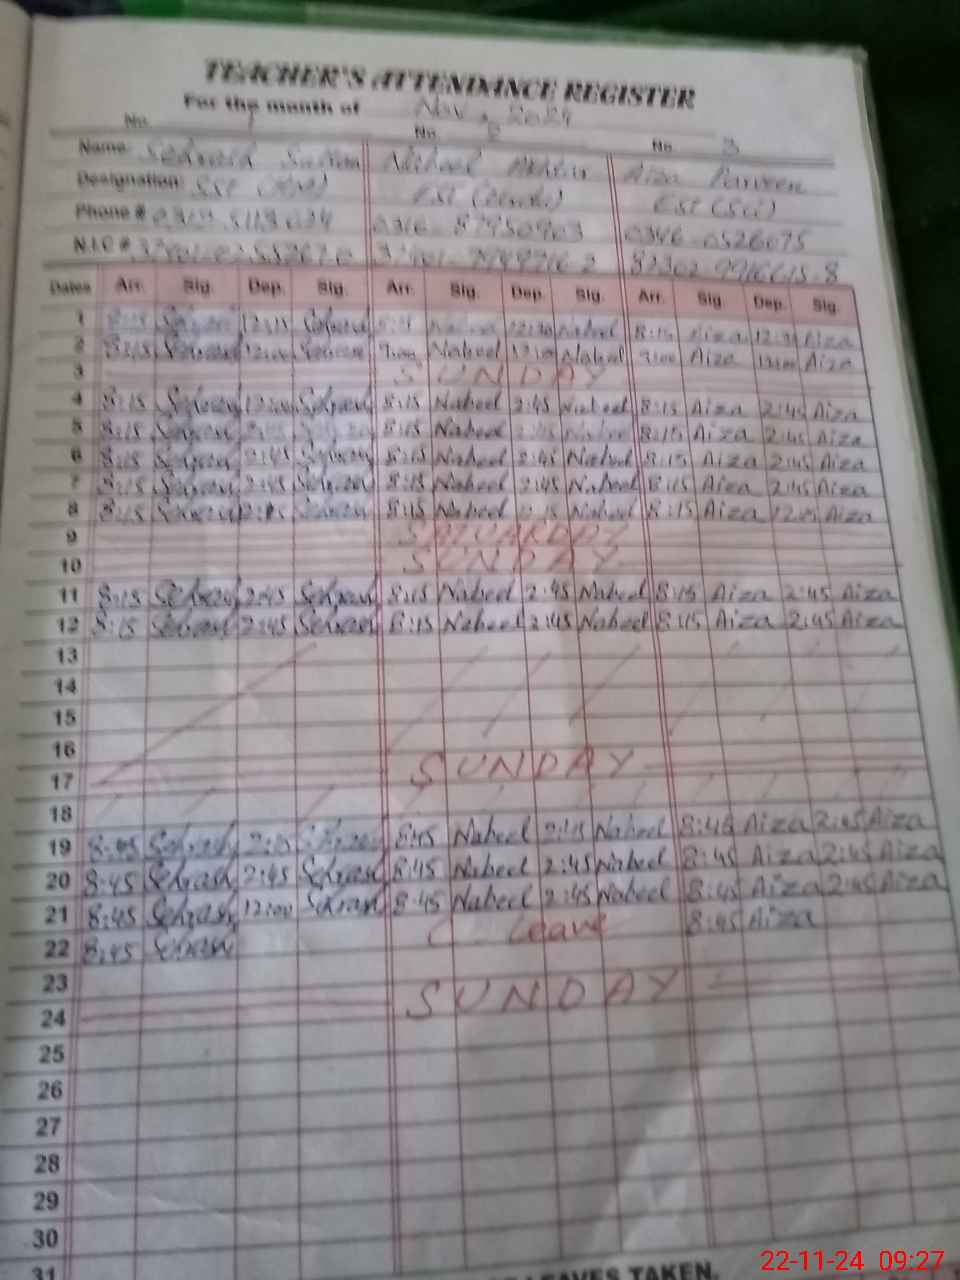 TEACHER'S ATTENDANCE REGISTER
For the month of Nov, 2024
No. 1 No. 2 No. 3
Name: Sehrash Nabeel Akhtar Aiza Parveen
Designation: SST EST EST (Sci)
Phone # 0316-8795090 0346-0526075
N.I.C #
Dates Arr. Sig. Dep. Sig. Arr. Sig. Dep. Sig. Arr. Sig. Dep. Sig.
1 8:15 Sehrash 12:15 Sehrash Nabeel 12:30 Nabeel 8:15 Aiza 12:30 Aiza
2 8:15 Sehrash 12:00 Sehrash 9:00 Nabeel Nabeel 9:00 Aiza 12:00 Aiza
3 SUNDAY
4 8:15 Sehrash Sehrash 8:15 Nabeel 2:45 Nabeel 8:15 Aiza 2:45 Aiza
5 8:15 Sehrash 2:45 Sehrash 8:15 Nabeel 2:45 Nabeel 8:15 Aiza 2:45 Aiza
6 8:15 Sehrash 2:45 Sehrash 8:15 Nabeel 2:45 Nabeel 8:15 Aiza 2:45 Aiza
7 8:15 Sehrash 2:45 Sehrash 8:15 Nabeel 2:45 Nabeel 8:15 Aiza 2:45 Aiza
8 8:15 Sehrash Sehrash 8:15 Nabeel Nabeel 8:15 Aiza Aiza
9 SATURDAY
10 SUNDAY
11 8:15 Sehrash 2:45 Sehrash 8:15 Nabeel 2:45 Nabeel 8:15 Aiza 2:45 Aiza
12 8:15 Sehrash 2:45 Sehrash 8:15 Nabeel 2:45 Nabeel 8:15 Aiza 2:45 Aiza
13
14
15
16
17 SUNDAY
18
19 8:45 Sehrash 2:45 Sehrash 8:45 Nabeel 2:45 Nabeel 8:45 Aiza 2:45 Aiza
20 8:45 Sehrash 2:45 Sehrash 8:45 Nabeel 2:45 Nabeel 8:45 Aiza 2:45 Aiza
21 8:45 Sehrash 12:00 Sehrash 8:45 Nabeel 2:45 Nabeel 8:45 Aiza 2:45 Aiza
22 8:45 Sehrash C. Leave 8:45 Aiza
23
24 SUNDAY
25
26
27
28
29
30
31
LEAVES TAKEN.
22-11-24 09:27